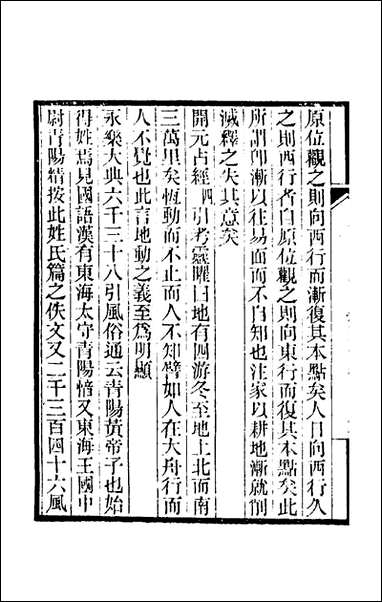 原位觀之則向西行而漸復其本點矣人目向西行久
之則西行者自原位觀之則向東行而復其本點矣此
所謂卽漸以往易面而不自知也注家以耕地漸就削
滅釋之失其意矣
開元占經四引考靈曜曰地有四游冬至地上北而南
三萬里矣恆動而不止而人不知譬如人在大舟行而
人不覺也此言地動之義至爲明顯
永樂大典六千三十八引風俗通云青陽黃帝子也始
得姓焉見國語漢有東海太守青陽愔又東海王國中
尉青陽精按此姓氏篇之佚文又二千三百四十六風